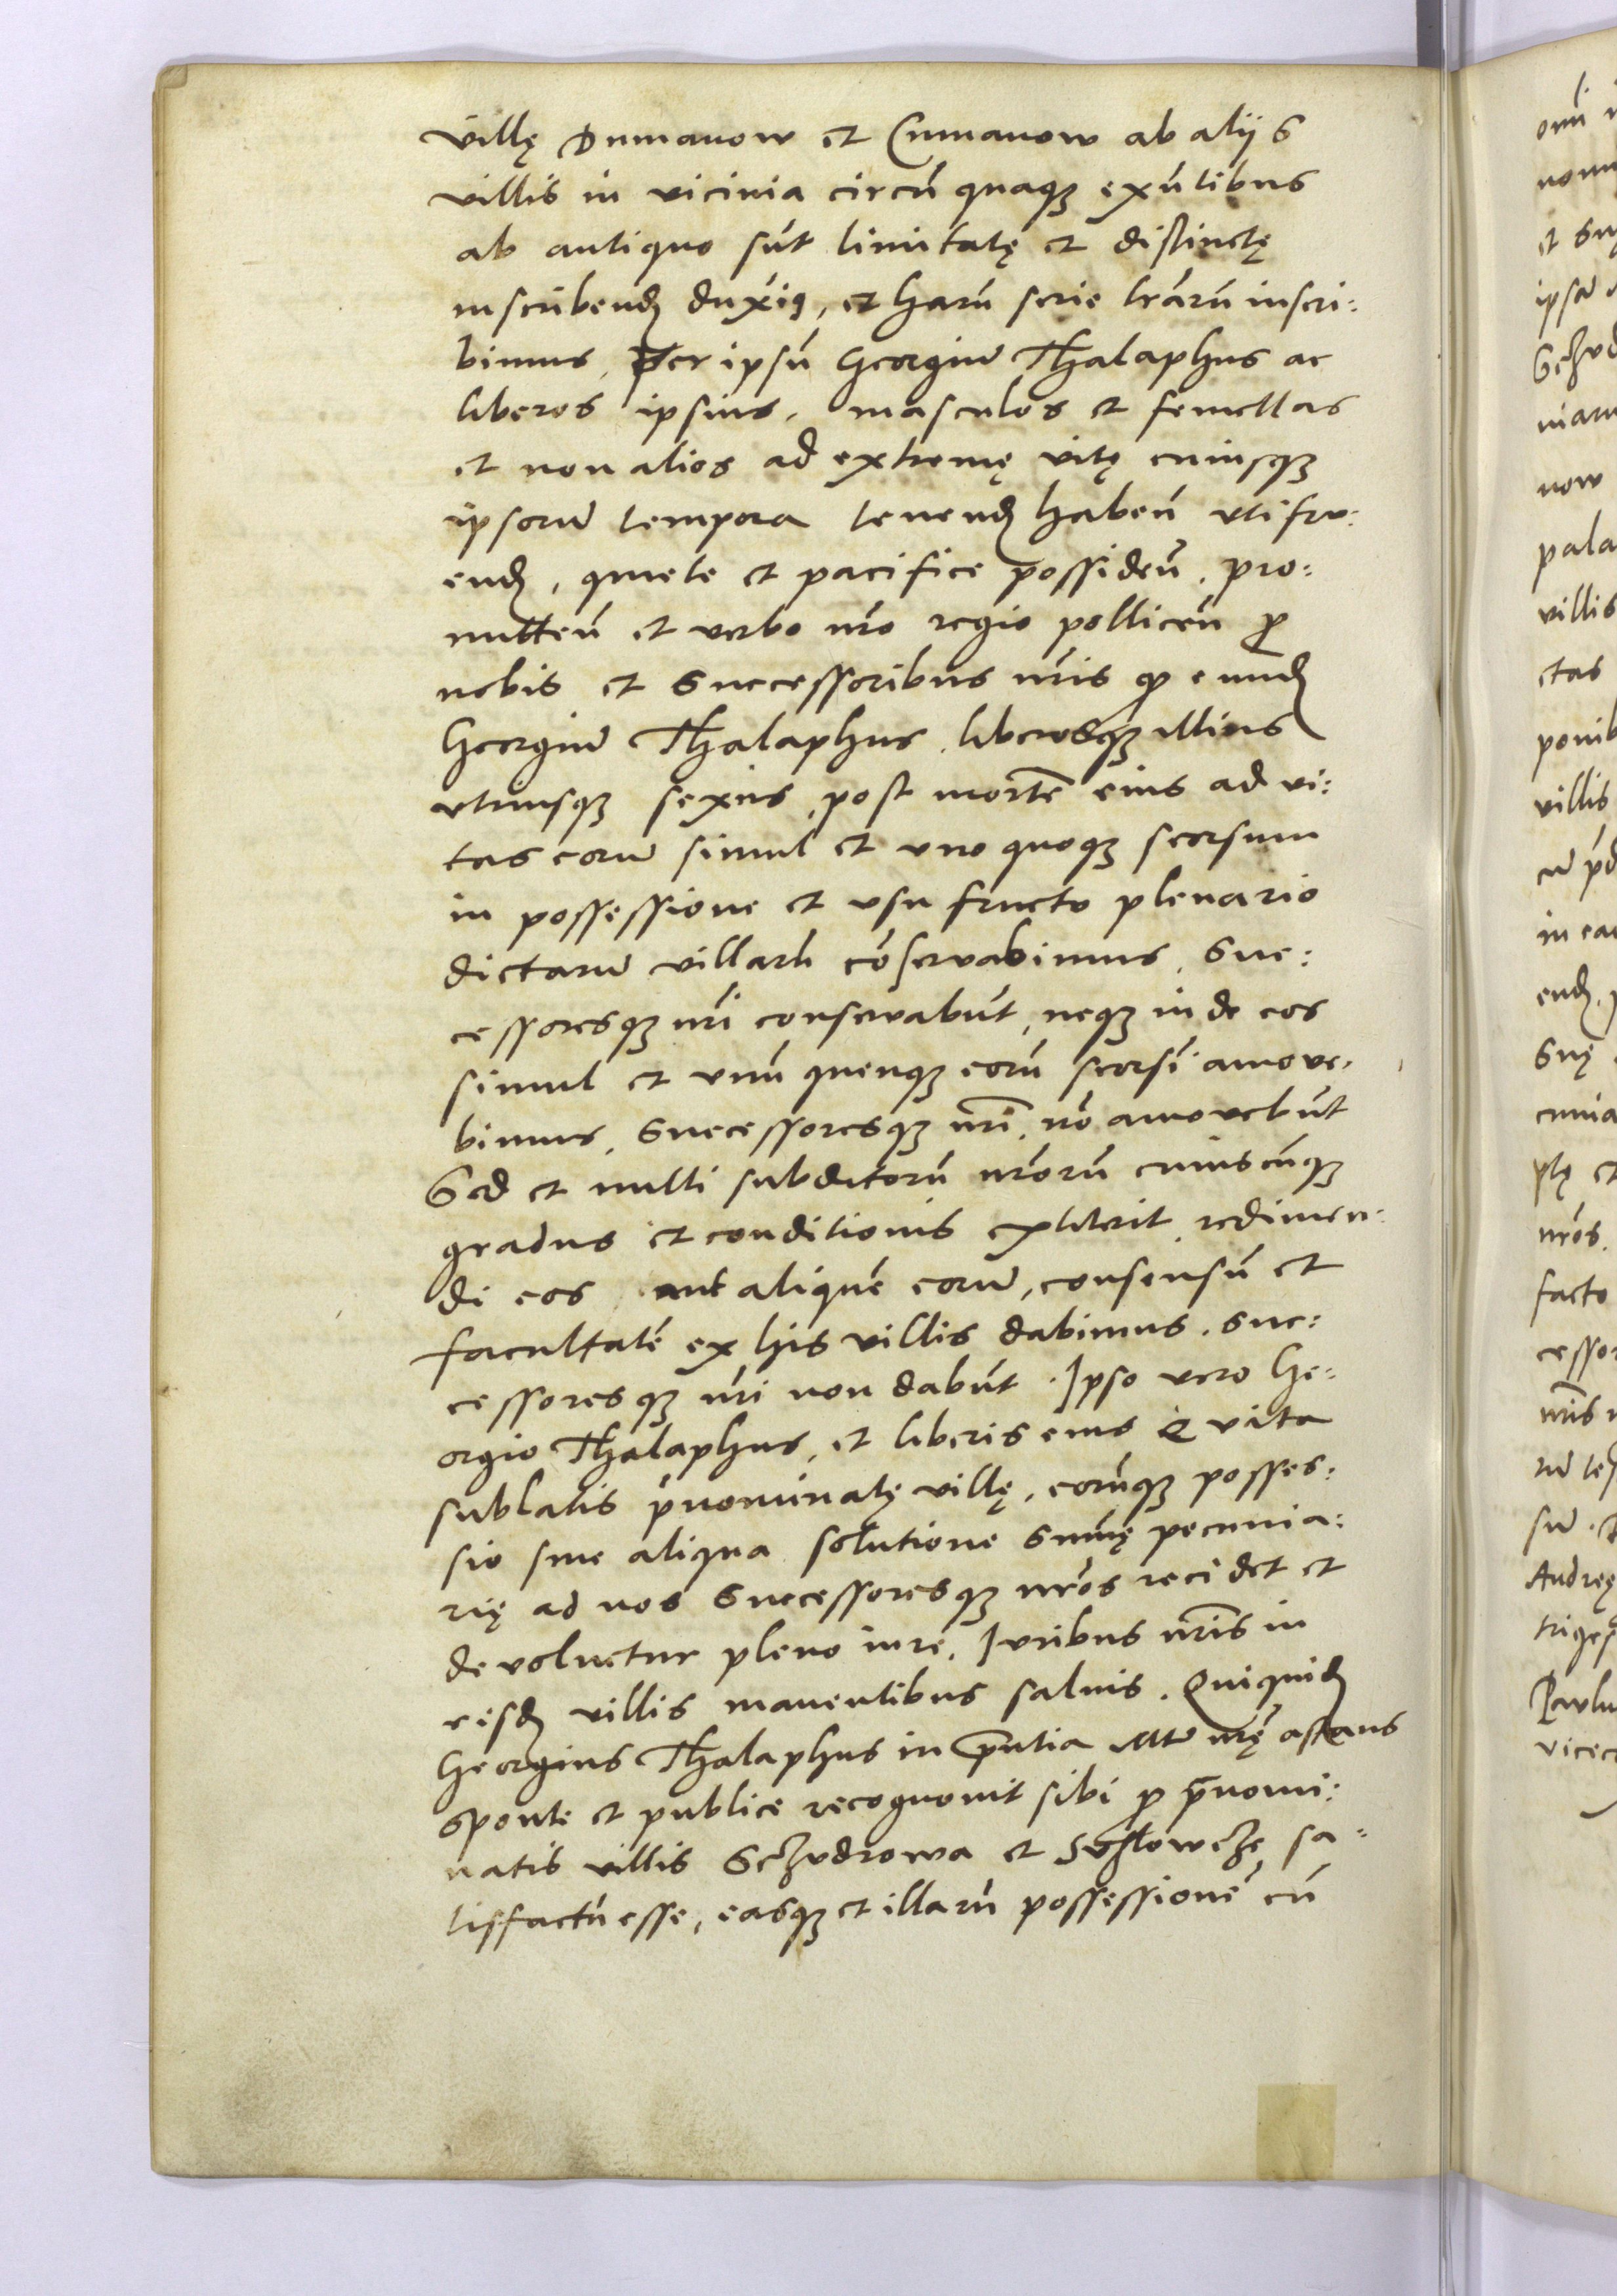 villę Dumanow et Cumanow ab alijs
villis in vicinia circũ quaqȝ exñtibus
ab antiquo sũt limitatę et distinctę
inscribend duxim9, et harũ serie lrãrũ inscri:
bimus, Per ipsũ Georgiũ Thalaphus ac
liberos ipsius, masculos et femellas
et non alios ad extremę vitę cuiusqȝ
ipsorũ tempora tenend habeñ vti fru:
end, quiete et pacifice possideñ, pro:
mitteñ et verbo nrõ regio polliceñ p
nobis et Successoribus nrĩs qp eund
Georgiũ Thalaphus, liberosqȝ illius
vtriusqȝ sexus, post mortẽ eius ad vi:
tas eorũ simul et vno quoqȝ seorsum
in possessione et vsu fructo plenario
dictarũ villarũ cõseruabimus, Suc:
cessoresqȝ nrĩ conseruabũt, neqȝ inde eos
simul et vnũ quenqȝ eorũ seorsĩ amoue:
bimus, Successoresqȝ nrĩ nõ amouebũt
Sed et nulli subditorũ nrõrũ cuiuscũqȝ
gradus et conditionis extiterit, redimen:
di eos aut aliquẽ eorũ, consensũ et
facultatẽ ex his villis dabimus, Suc:
cessoresqȝ nrĩ non dabũt. Ipso vero Ge:
orgio Thalaphus, et liberis eius e vita
sublatis p̃nominatę villę, eorũqȝ posses:
sio sine aliqua solutione Sum̃ę pecunia:
rię ad nos Successoresqȝ nrõs recidet et
deuoluetur pleno iure, Iuribus nrĩs in
eisd villis manentibus saluis. Quiquid
Georgius Thalaphus in p̃ntia Mtis nrę̃ astans
sponte et publice recognouit sibi p p̃nomi:
natis villis Sczudrowa et Susłowcze sa:
tisfactũ esse, easqȝ et illarũ possessionẽ cũ